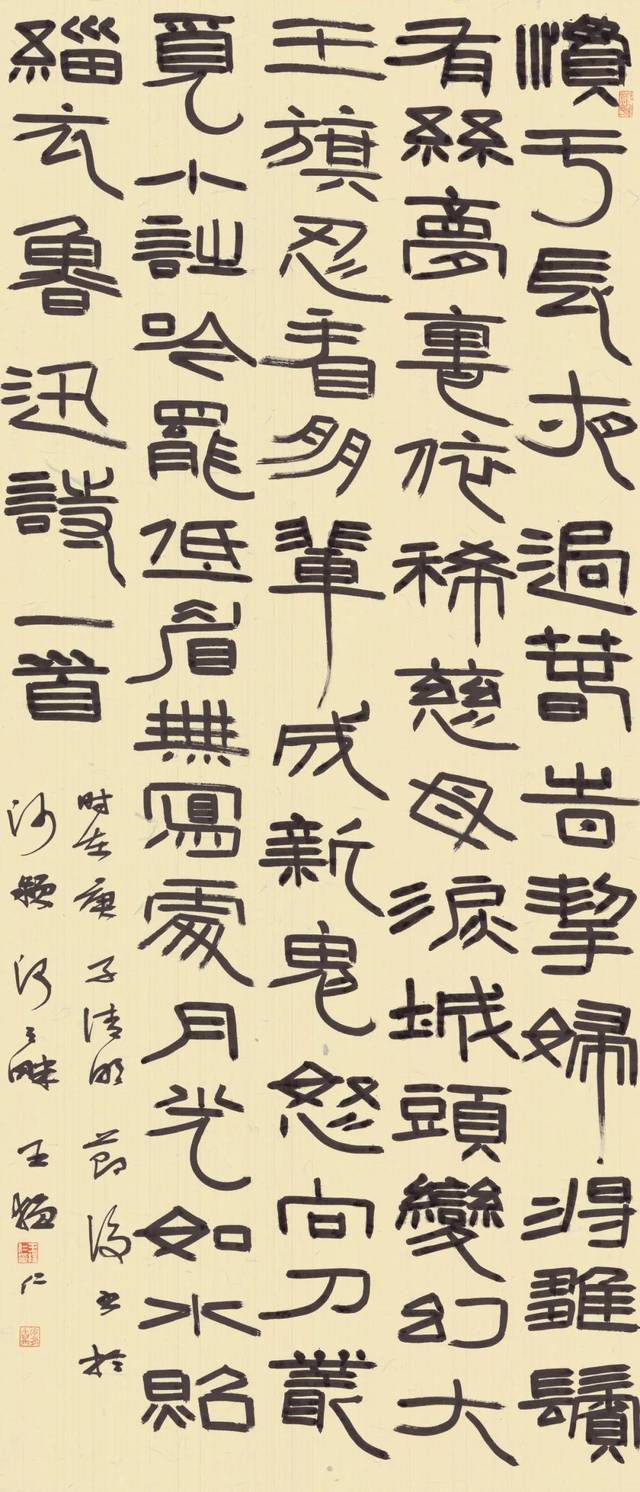 慣于長夜過春旹挈婦將雛鬢
有絲夢裏依稀慈母淚城頭變幻大
王旗忍看朋輩成新鬼怒向刀叢
覓小詩吟罷低眉無寫處月光如水照
緇衣魯迅詩一首
时在庚子清明节後书於
沙颍河之畔王猛仁